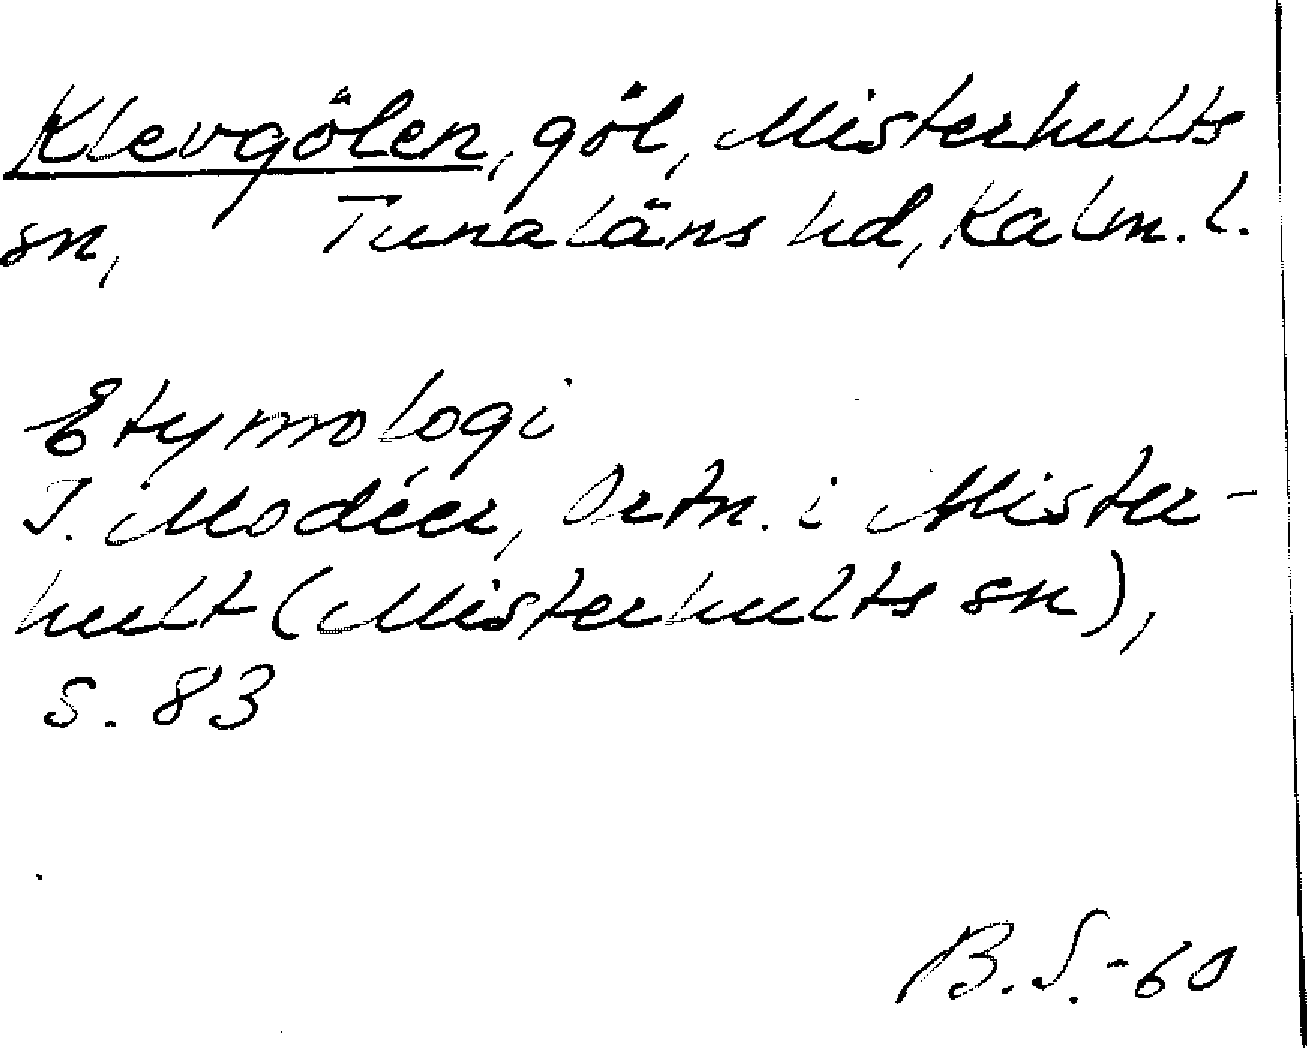 Klevgölen, göl, Misterhults
sn, Tunaläns hd, Kalm. l.
Etymologi
I. Modéer, Ortn. i Mister-
hult (Misterhults sn),
s. 83
B.S.-60